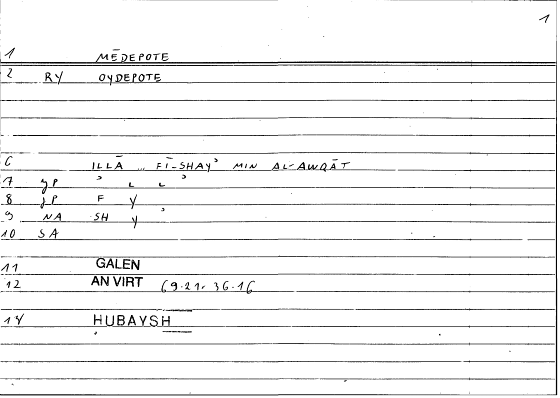 1
1 MĒDEPOTE
2 RY OYDEPOTE
6 ILLĀ ... FĪ-SHAYʾ MIN AL-AWQĀT
7 yP ʾ L L ʾ
8 yP F Y
9 NA SH Y ʾ
10 SA
11 GALEN
12 AN VIRT 69.21. 36.16
14 HUBAYSH